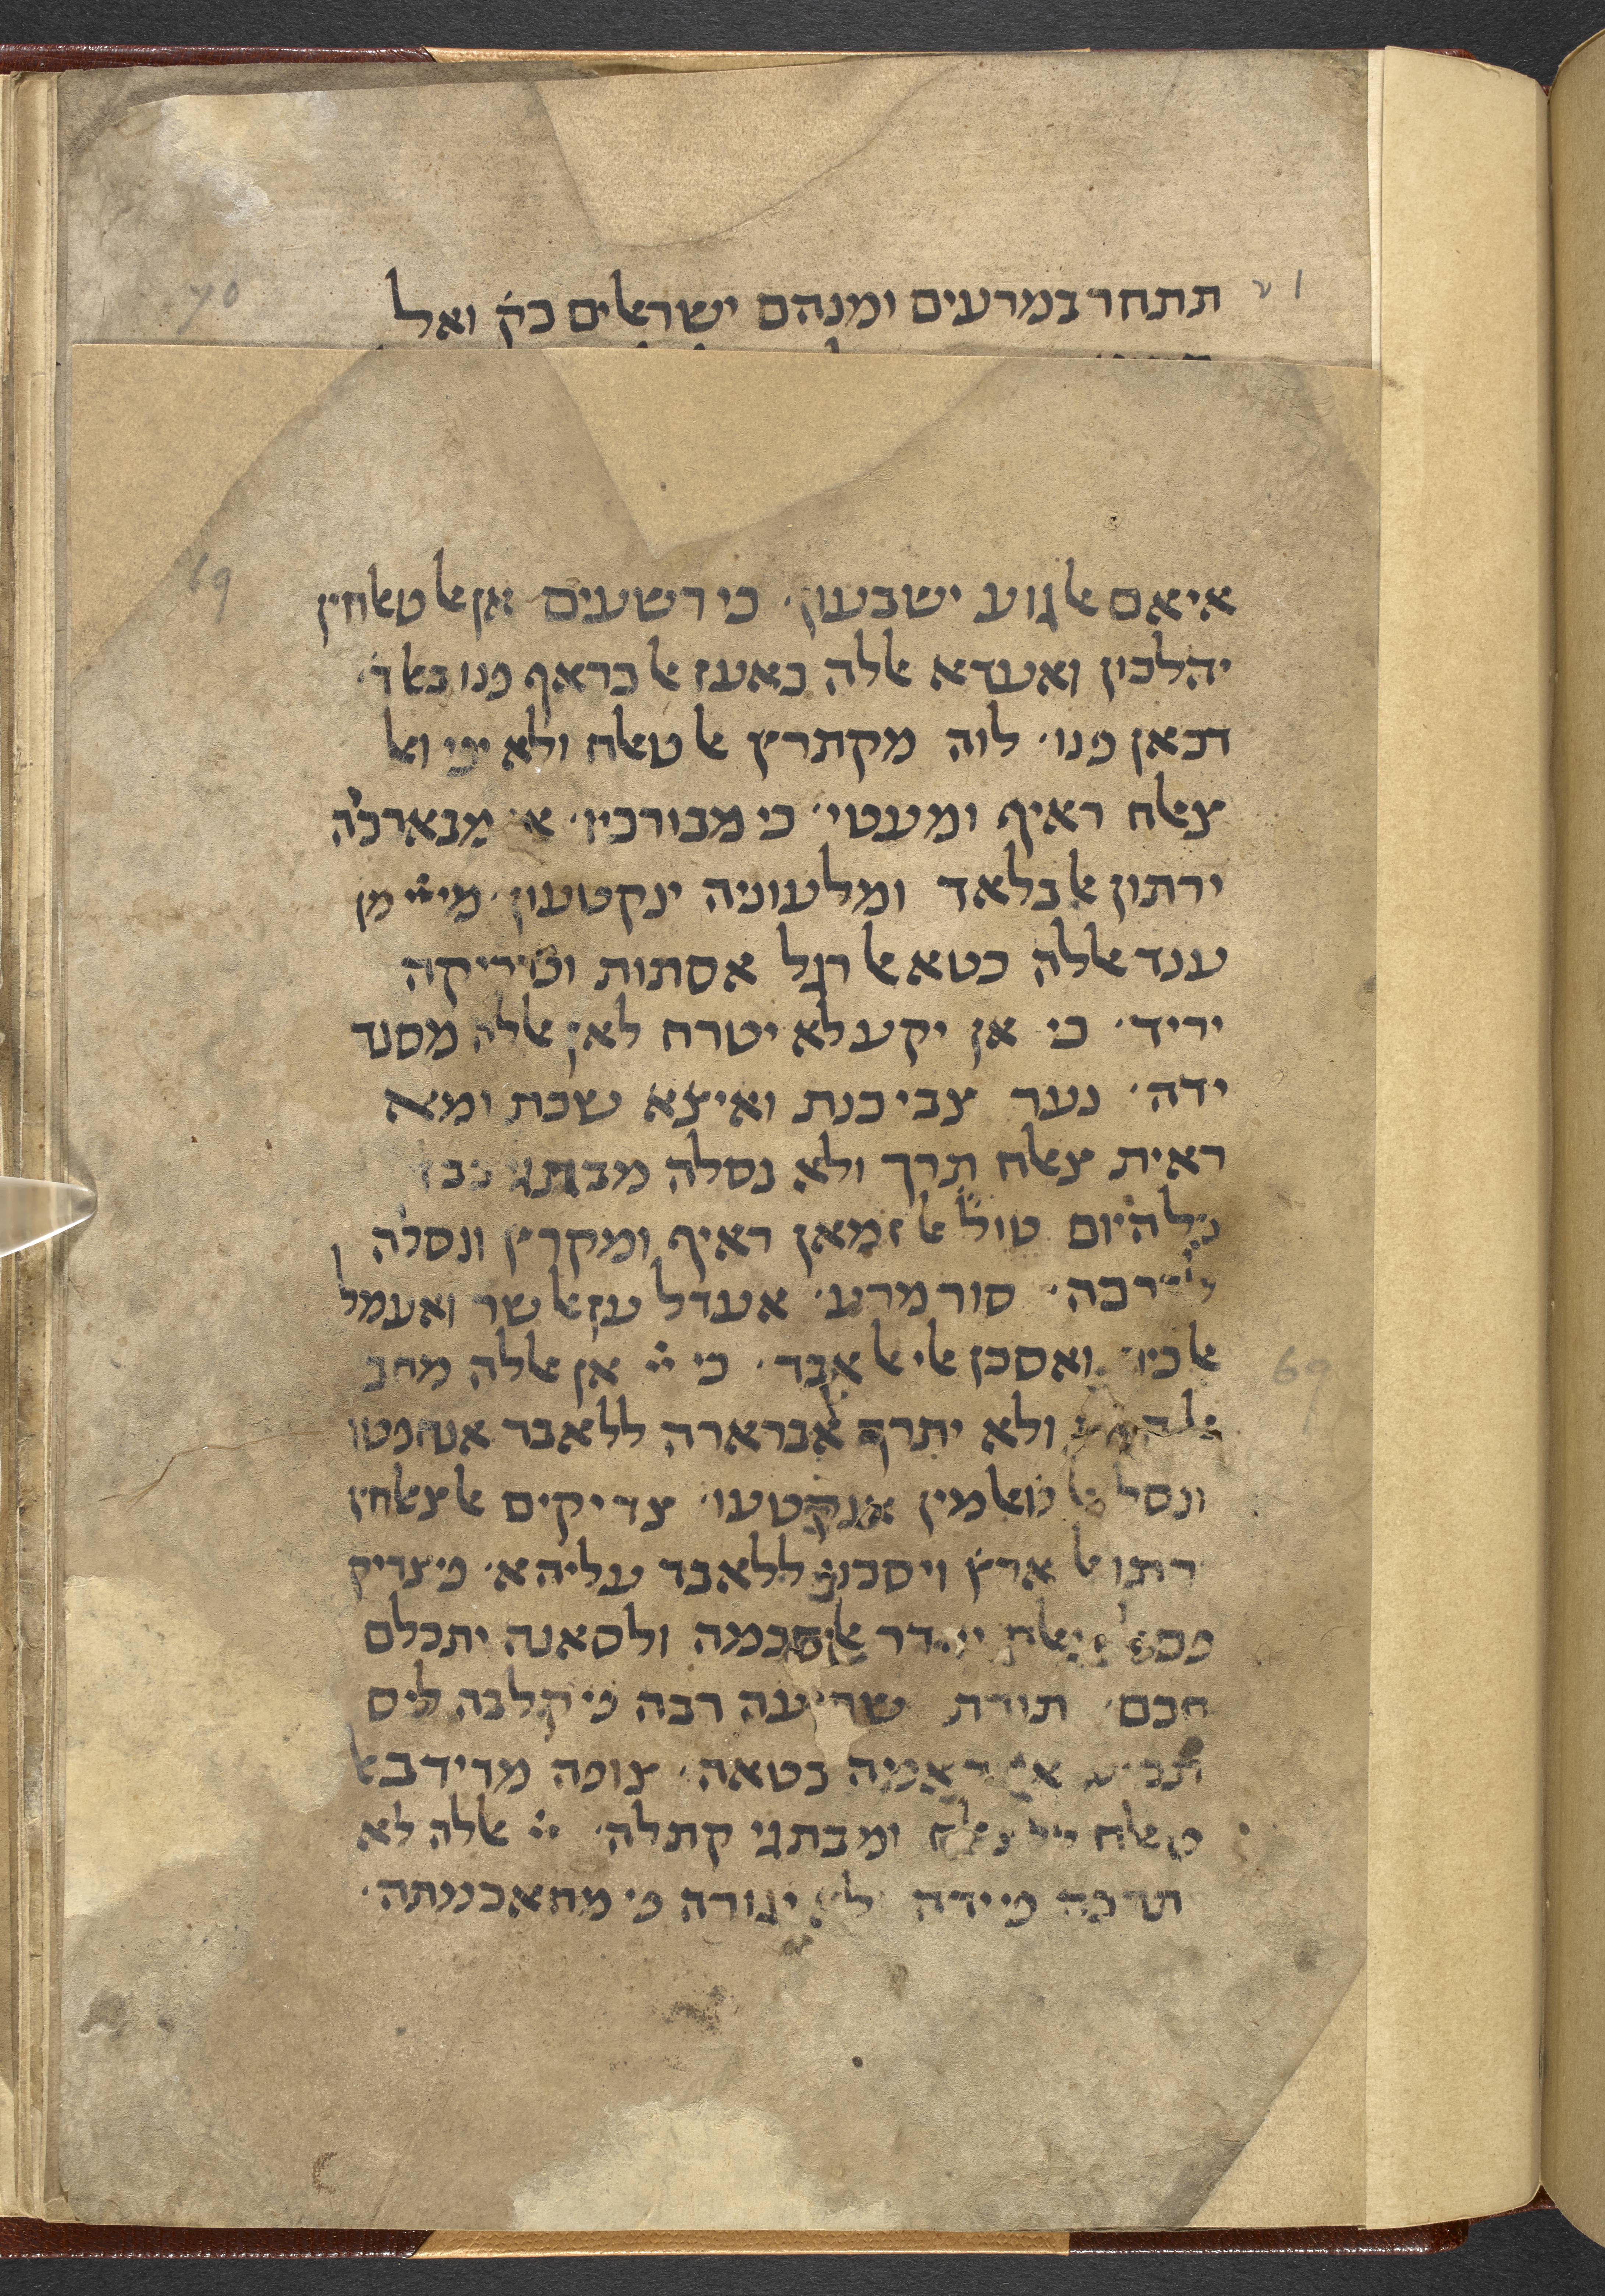 תתחר במרעים ומנהם ישראלים כק ואל
איאם אלגוע ישבעון. כי רשעים אן אלטאלחין
יהלכון ואעדא אללה כאעז אלכראף פנו באלד.
דכאן פנו. לוה מקתרץ אלטאלח ולא יפי ואל
צאלח ראיף ומעטי. כי מבורכיו. אן מבארכה
ירתון אלבלאד ומלעוניה ינקטעון. מיי מן
ענד אללה כטא אלרגל אסתות וטריקה
יריד. כי אן יקע לא יטרח לאן אללה מסנד
ידה. נער צבי כנת ואיצא שבת ומא
ראית צאלח תרך ולא נסלה מבתגי
כל היום טול אלזמאן ראיף ומקרץ ונסלה
ללברכה. סור מרע. אעדל ען אלשר ואעמל
אלכיר ואסכן אלי אלאבד. כי יי אן אללה מחב
ולא יתרך אברארה ללאבד אנחפטו
ונסל אלטאלמין אנקטעו. צדיקים אלצאלחין
ירתו אלארץ ויסכנו ללאבד עליהא. פי צדיק
פם אלצאלח יהדר אלחכמה ולסאנה יתכלם
חכם. תורת שריעה רבה פי קלבה ליס
אקדאמה כטאה. צופה מדידב אל
טאלח ללצאלח ומבתגי קתלה. יי אללה לא
תרכה פי ידה לא יגורה פי מחאכמתה.
70
69
69